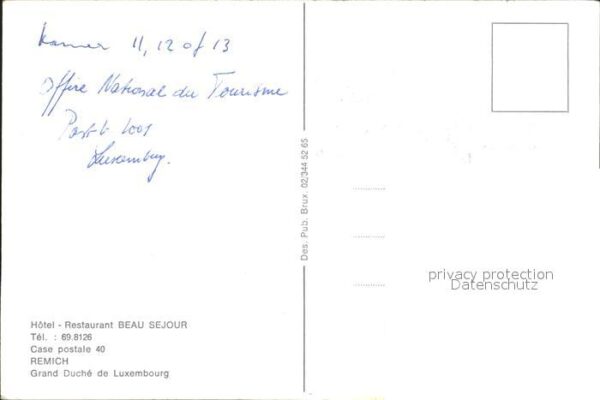 Kamer 11, 12 of 13
Office National du Tourisme
Postb 1001
Luxemburg.
Hôtel - Restaurant BEAU SEJOUR
Tél. : 69.8126
Case postale 40
REMICH
Grand Duché de Luxembourg
Des. Pub. Brux. 02/344 52 65
privacy protection
Datenschutz